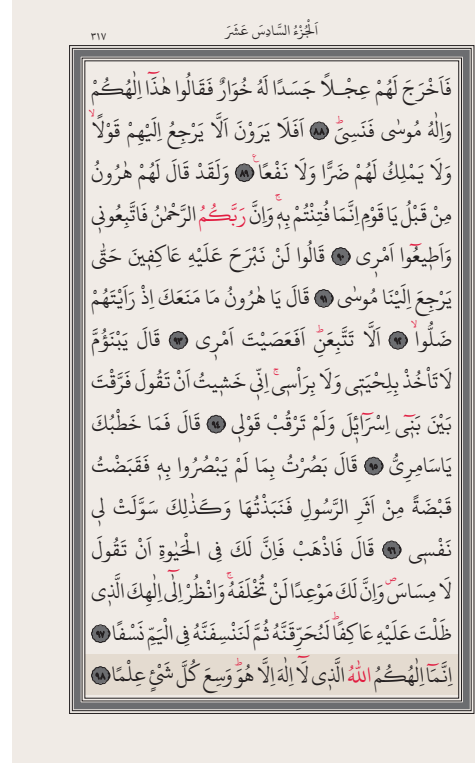 اَلْجُزْءُ السَّادِسَ عَشَرَ
٣١٧
فَاَخْرَجَ لَهُمْ عِجْلاً جَسَدًا لَهُ خُوَارٌ فَقَالُوا هٰذَٓا اِلٰهُكُمْ
وَاِلٰهُ مُوسٰى فَنَسِىَۜ ﴿٨٨﴾ اَفَلَا يَرَوْنَ اَلَّا يَرْجِعُ اِلَيْهِمْ قَوْلًاۙ
وَلَا يَمْلِكُ لَهُمْ ضَرًّا وَلَا نَفْعًا۟ ﴿٨٩﴾ وَلَقَدْ قَالَ لَهُمْ هٰرُونُ
مِنْ قَبْلُ يَا قَوْمِ اِنَّمَا فُتِنْتُمْ بِهٖۚ وَاِنَّ رَبَّكُمُ الرَّحْمٰنُ فَاتَّبِعُونٖى
وَاَطٖيعُٓوا اَمْرٖى ﴿٩٠﴾ قَالُوا لَنْ نَبْرَحَ عَلَيْهِ عَاكِفٖينَ حَتّٰى
يَرْجِعَ اِلَيْنَا مُوسٰى ﴿٩١﴾ قَالَ يَا هٰرُونُ مَا مَنَعَكَ اِذْ رَاَيْتَهُمْ
ضَلُّواۙ ﴿٩٢﴾ اَلَّا تَتَّبِعَنِۜ اَفَعَصَيْتَ اَمْرٖى ﴿٩٣﴾ قَالَ يَبْنَؤُمَّ
لَا تَاْخُذْ بِلِحْيَتٖى وَلَا بِرَاْسٖىۚ اِنّٖى خَشٖيتُ اَنْ تَقُولَ فَرَّقْتَ
بَيْنَ بَنٖٓى اِسْرَٓائٖلَ وَلَمْ تَرْقُبْ قَوْلٖى ﴿٩٤﴾ قَالَ فَمَا خَطْبُكَ
يَاسَامِرِىُّ ﴿٩٥﴾ قَالَ بَصُرْتُ بِمَا لَمْ يَبْصُرُوا بِهٖ فَقَبَضْتُ
قَبْضَةً مِنْ اَثَرِ الرَّسُولِ فَنَبَذْتُهَا وَكَذٰلِكَ سَوَّلَتْ لٖى
نَفْسٖى ﴿٩٦﴾ قَالَ فَاذْهَبْ فَاِنَّ لَكَ فِى الْحَيٰوةِ اَنْ تَقُولَ
لَا مِسَاسَۖ وَاِنَّ لَكَ مَوْعِدًا لَنْ تُخْلَفَهُۚ وَانْظُرْ اِلٰٓى اِلٰهِكَ الَّذٖى
ظَلْتَ عَلَيْهِ عَاكِفًاۜ لَنُحَرِّقَنَّهُ ثُمَّ لَنَنْسِفَنَّهُ فِى الْيَمِّ نَسْفًا ﴿٩٧﴾
اِنَّمَٓا اِلٰهُكُمُ اللّٰهُ الَّذٖى لَٓا اِلٰهَ اِلَّا هُوَۜ وَسِعَ كُلَّ شَیْءٍ عِلْمًا ﴿٩٨﴾